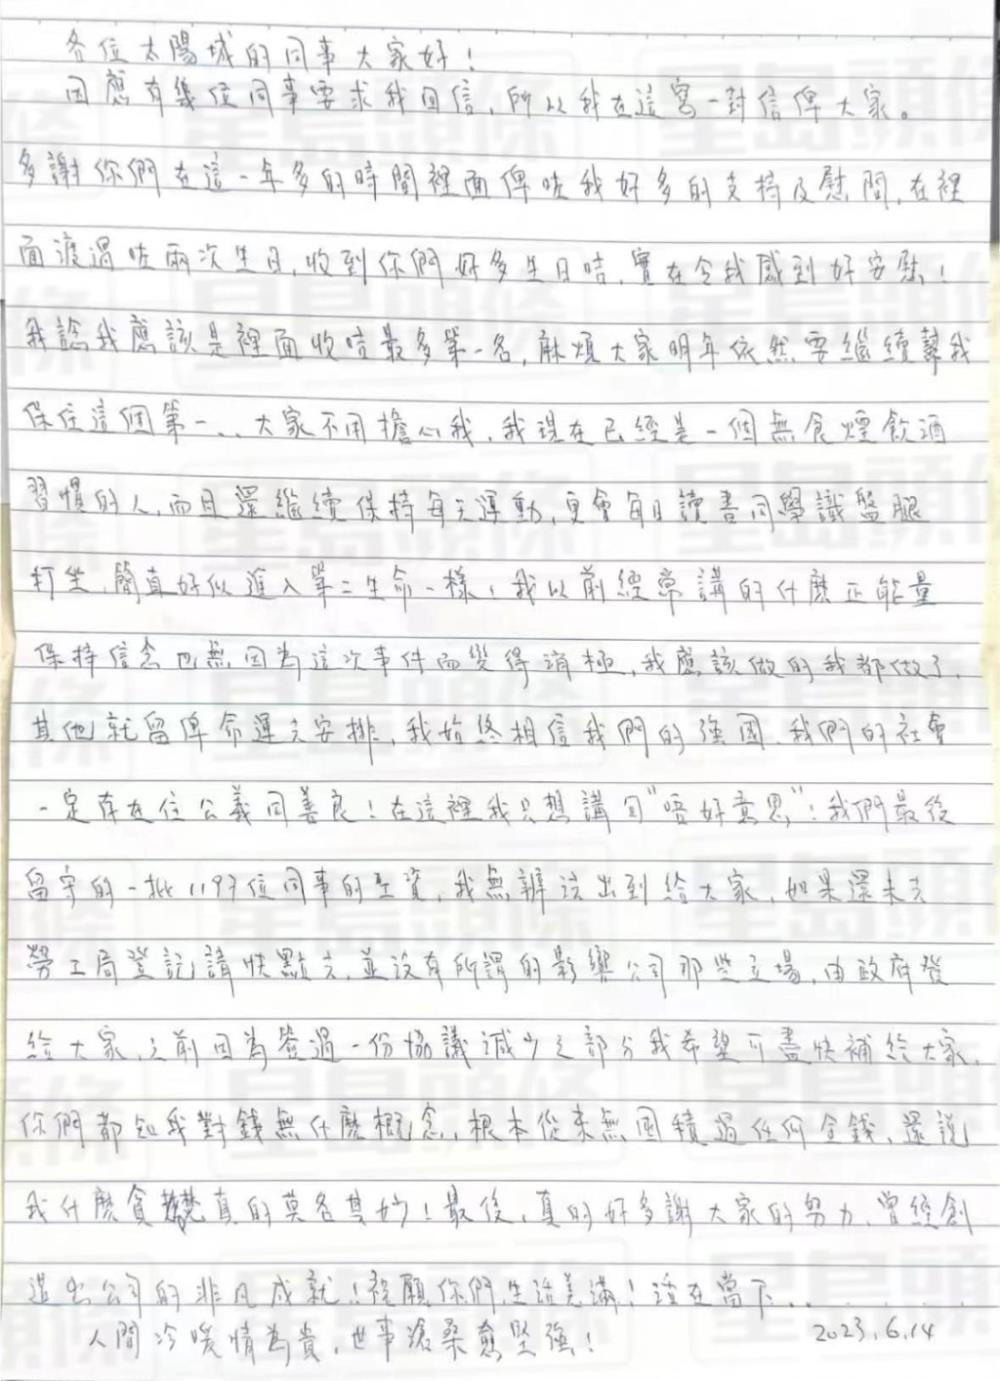 各位太陽城的同事大家好！
因應有幾位同事要求我回信，所以我在這寫一封信俾大家。
多謝你們在這一年多的時間裡面俾咗我好多的支持及慰問，在裡
面渡過咗兩次生日，收到你們好多生日咭，實在令我感到好安慰！
我諗我應該是裡面收咭最多第一名，麻煩大家明年依然要繼續幫我
保住這個第一..大家不用擔心我，我現在已經是一個無食煙飲酒
習慣的人，而且還繼續保持每天運動，更會每日讀書同學識盤腿
打坐，簡直好似進入第二生命一樣，我以前經常講的什麼正能量
保持信念也無因為這次事件而變得消極，我應該做的我都做了，
其他就留俾命運去安排，我始終相信我們的強國、我們的社會
一定存在住公義同善良！在這裡我只想講回"唔好意思"！我們最後
留守的一批1197位同事的工資，我無辦法出到給大家，如果還未去
勞工局登記請快點去，並沒有所謂的影響公司那些立場，由政府發
給大家，之前因為簽過一份協議減少之部分我希望可盡快補給大家，
你們都知我對錢無什麼概念，根本從來無囤積過任何金錢，還說
我什麼貪婪真的莫名其妙！最後，真的好多謝大家的努力，曾經創
造出公司的非凡成就！祝願你們，生活美滿！活在當下..
人間冷暖情為貴，世事滄桑愈堅強！
2023.6.14
星島頭條